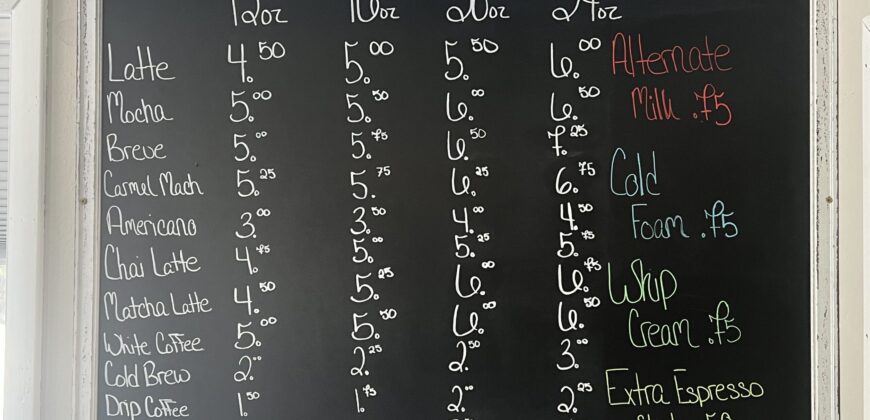 12oz 16oz 20oz 24oz
Latte 4.50 5.00 5.50 6.00
Mocha 5.00 5.50 6.00 6.50
Breve 5.00 5.75 6.50 7.25
Carmel Mach 5.25 5.75 6.25 6.75
Americano 3.00 3.50 4.00 4.50
Chai Latte 4.75 5.00 5.25 5.75
Matcha Latte 4.50 5.25 6.00 6.75
White Coffee 5.00 5.50 6.00 6.50
Cold Brew 2.00 2.25 2.50 3.00
Drip Coffee 1.50 1.75 2.00 2.25
Alternate
Milk .75
Cold
Foam .75
Whip
Cream .75
Extra Espresso